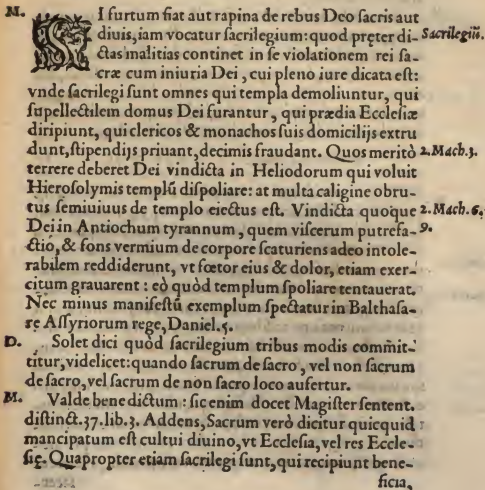 M. SI furtum fiat aut rapina de rebus Deo sacris aut
diuis, iam vocatur sacrilegium: quod pręter di- Sacrilegiũ.
ctas malitias continet in se violationem rei sa-
cræ cum iniuria Dei, cui pleno iure dicata est:
vnde sacrilegi sunt omnes qui templa demoliuntur, qui
supellectilem domus Dei furantur, qui prædia Ecclesiæ
diripiunt, qui clericos & monachos suis domicilijs extru
dunt, stipendijs priuant, decimis fraudant. Quos meritò 2. Mach. 3.
terrere deberet Dei vindicta in Heliodorum qui voluit
Hierosolymis templũ dispoliare: at multa caligine obru-
tus semiuiuus de templo eiectus est. Vindicta quoque 2. Mach. 6.
Dei in Antiochum tyrannum, quem viscerum putrefa- 9.
ctio, & fons vermium de corpore scaturiens adeo intole-
rabilem reddiderunt, vt fœtor eius & dolor, etiam exer-
citum grauarent: eò quòd templum spoliare tentauerat.
Nec minus manifestũ exemplum spectatur in Balthasa-
re Assyriorum rege, Daniel. 5.
D. Solet dici quòd sacrilegium tribus modis commit-
titur, videlicet: quando sacrum de sacro, vel non sacrum
de sacro, vel sacrum de non sacro loco aufertur.
M. Valde benedictum: sic enim docet Magister sentent.
distinct. 37. lib. 3. Addens, Sacrum verò dicitur quicquid
mancipatum est cultui diuino, vt Ecclesia, vel res Eccle-
się. Quapropter etiam sacrilegi sunt, qui recipiunt bene-
ficia,